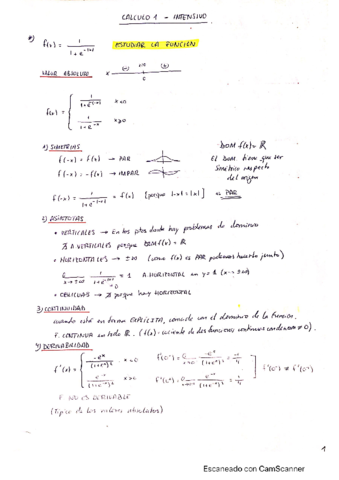 CALCULO 1 - INTENSIVO
f(x) = 1 / (1 + e^-|x|)   ESTUDIAR LA FUNCION
VALOR ABSOLUTO   x (-) (+)
0
f(x) = { 1 / (1+e^-(-x))   x<0
1 / (1+e^-x)   x≥0
1) SIMETRIAS   DOM f(x) = ℝ
f(-x) = f(x) → PAR   El DOM tiene que ser
f(-x) = -f(x) → IMPAR   simétrico respecto
del origen
f(-x) = 1 / (1+e^-|-x|) = f(x) [porque |-x| = |x|] es PAR
2) ASINTOTAS
• VERTICALES → En los ptos donde hay problemas de dominio
∄ A VERTICALES porque DOM f(x) = ℝ
• HORIZONTALES → ±∞ (como f(x) es PAR podemos hacerlo junto)
1 / (1+e^-|x|) = 1   A. HORIZONTAL en y=1 (x→±∞)
• OBLICUAS → ∄ porque hay HORIZONTAL
3) CONTINUIDAD
cuando está en forma EXPLICITA, coincide con el dominio de la función.
F. CONTINUA en todo ℝ. (f(x) = cociente de dos funciones continuas con denom ≠ 0).
4) DERIVABILIDAD
f'(x) = { -e^x / (1+e^x)^2   x<0
e^-x / (1+e^-x)^2   x>0
f'(0^-) ≠ f'(0^+)
F. NO ES DERIVABLE
(Típico de los valores absolutos)
1
Escaneado con CamScanner